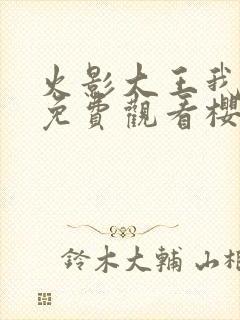 火影大王我
免費觀看櫻
鈴木大輔 山相